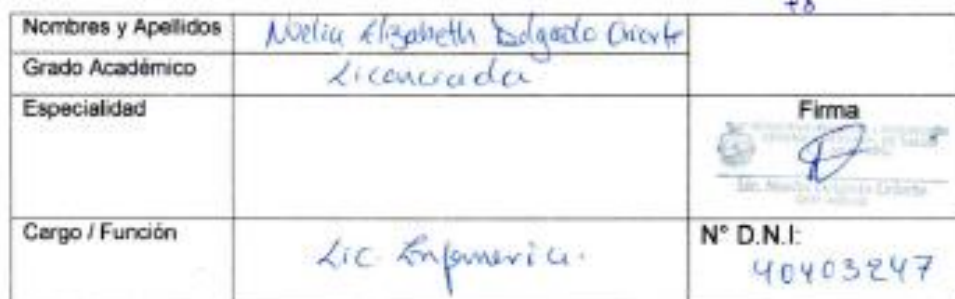 Nombres y Apellidos Noelia Elizabeth Delgado Oriarte
Grado Académico Licenciada
Especialidad
Firma
Cargo / Función Lic Enfermeria.
N° D.N.I:
40403247